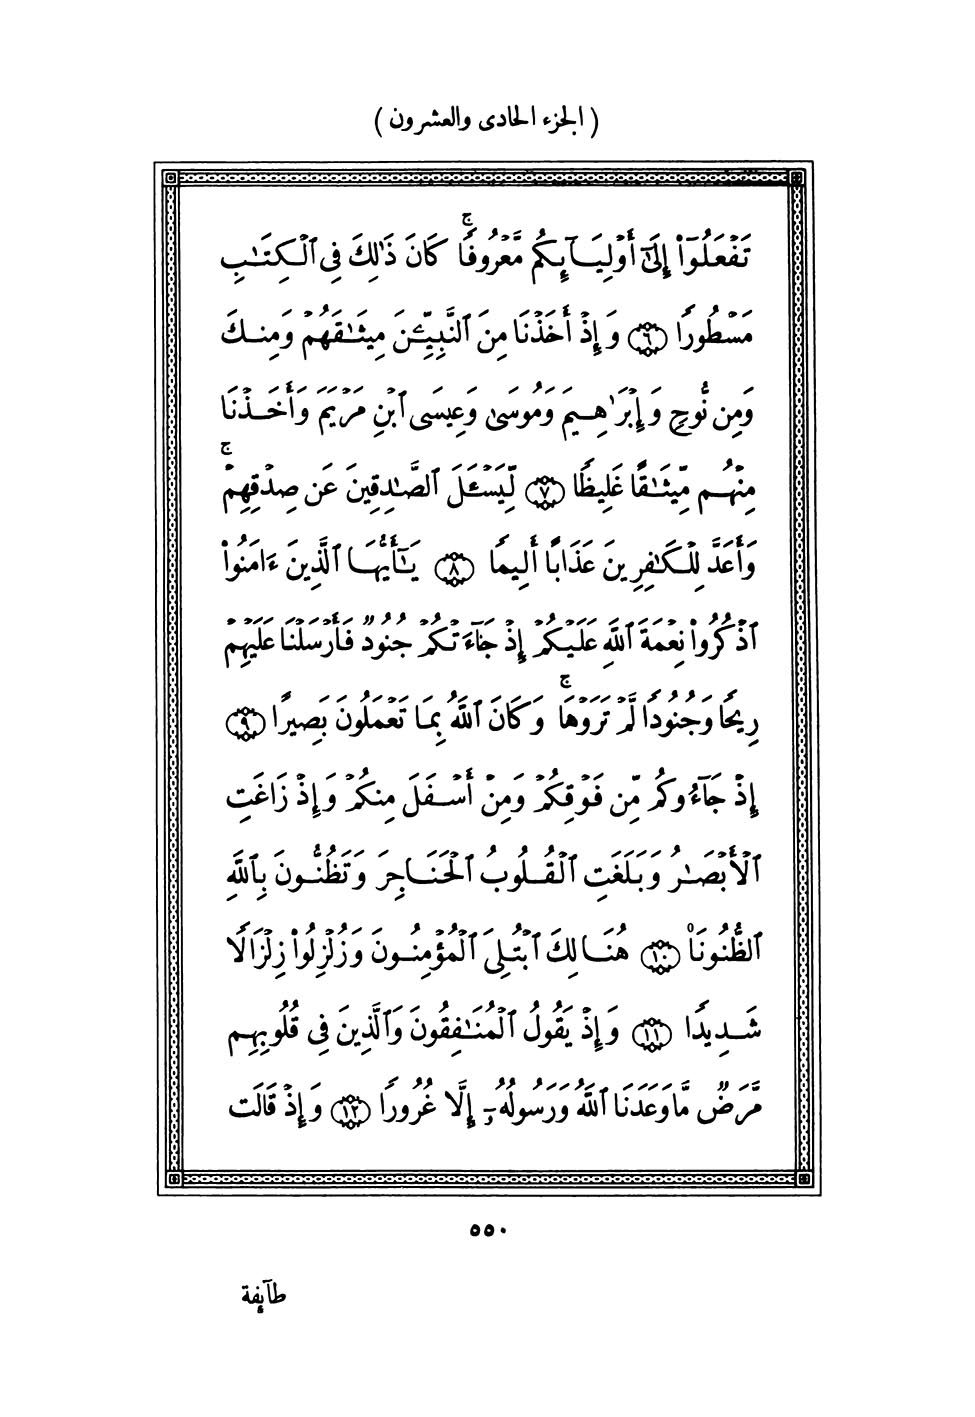 ( الجزء الحادى والعشرون )
تَفْعَلُوٓا۟ إِلَىٰٓ أَوْلِيَآئِكُم مَّعْرُوفًا ۚ كَانَ ذَٰلِكَ فِى ٱلْكِتَـٰبِ
مَسْطُورًا ۝٦ وَإِذْ أَخَذْنَا مِنَ ٱلنَّبِيِّـۧنَ مِيثَـٰقَهُمْ وَمِنكَ
وَمِن نُّوحٍ وَإِبْرَٰهِيمَ وَمُوسَىٰ وَعِيسَى ٱبْنِ مَرْيَمَ وَأَخَذْنَا
مِنْهُم مِّيثَـٰقًا غَلِيظًا ۝٧ لِّيَسْـَٔلَ ٱلصَّـٰدِقِينَ عَن صِدْقِهِمْ ۚ
وَأَعَدَّ لِلْكَـٰفِرِينَ عَذَابًا أَلِيمًا ۝٨ يَـٰٓأَيُّهَا ٱلَّذِينَ ءَامَنُوا۟
ٱذْكُرُوا۟ نِعْمَةَ ٱللَّهِ عَلَيْكُمْ إِذْ جَآءَتْكُمْ جُنُودٌ فَأَرْسَلْنَا عَلَيْهِمْ
رِيحًا وَجُنُودًا لَّمْ تَرَوْهَا ۚ وَكَانَ ٱللَّهُ بِمَا تَعْمَلُونَ بَصِيرًا ۝٩
إِذْ جَآءُوكُم مِّن فَوْقِكُمْ وَمِنْ أَسْفَلَ مِنكُمْ وَإِذْ زَاغَتِ
ٱلْأَبْصَـٰرُ وَبَلَغَتِ ٱلْقُلُوبُ ٱلْحَنَاجِرَ وَتَظُنُّونَ بِٱللَّهِ
ٱلظُّنُونَا۠ ۝١٠ هُنَالِكَ ٱبْتُلِىَ ٱلْمُؤْمِنُونَ وَزُلْزِلُوا۟ زِلْزَالًا
شَدِيدًا ۝١١ وَإِذْ يَقُولُ ٱلْمُنَـٰفِقُونَ وَٱلَّذِينَ فِى قُلُوبِهِم
مَّرَضٌ مَّا وَعَدَنَا ٱللَّهُ وَرَسُولُهُۥٓ إِلَّا غُرُورًا ۝١٢ وَإِذْ قَالَت
٥٥٠
طآئفة